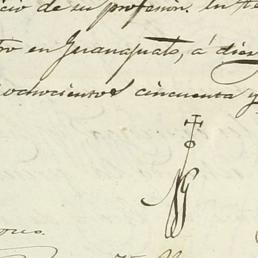 cio de su profesion. En fe
tro en Guanajuato, á diez
ochocientos cincuenta y